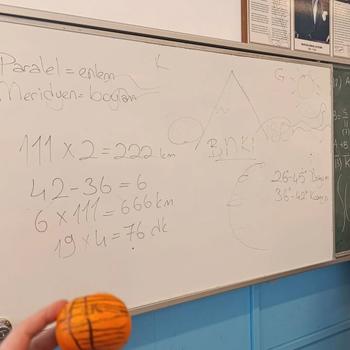 Paralel = enlem
Meridyen = boylam
K
G
BNKI
111 x 2 = 222 km
42 - 36 = 6
6 x 111 = 666 km
19 x 4 = 76 dk
26°-45°
36°-42°